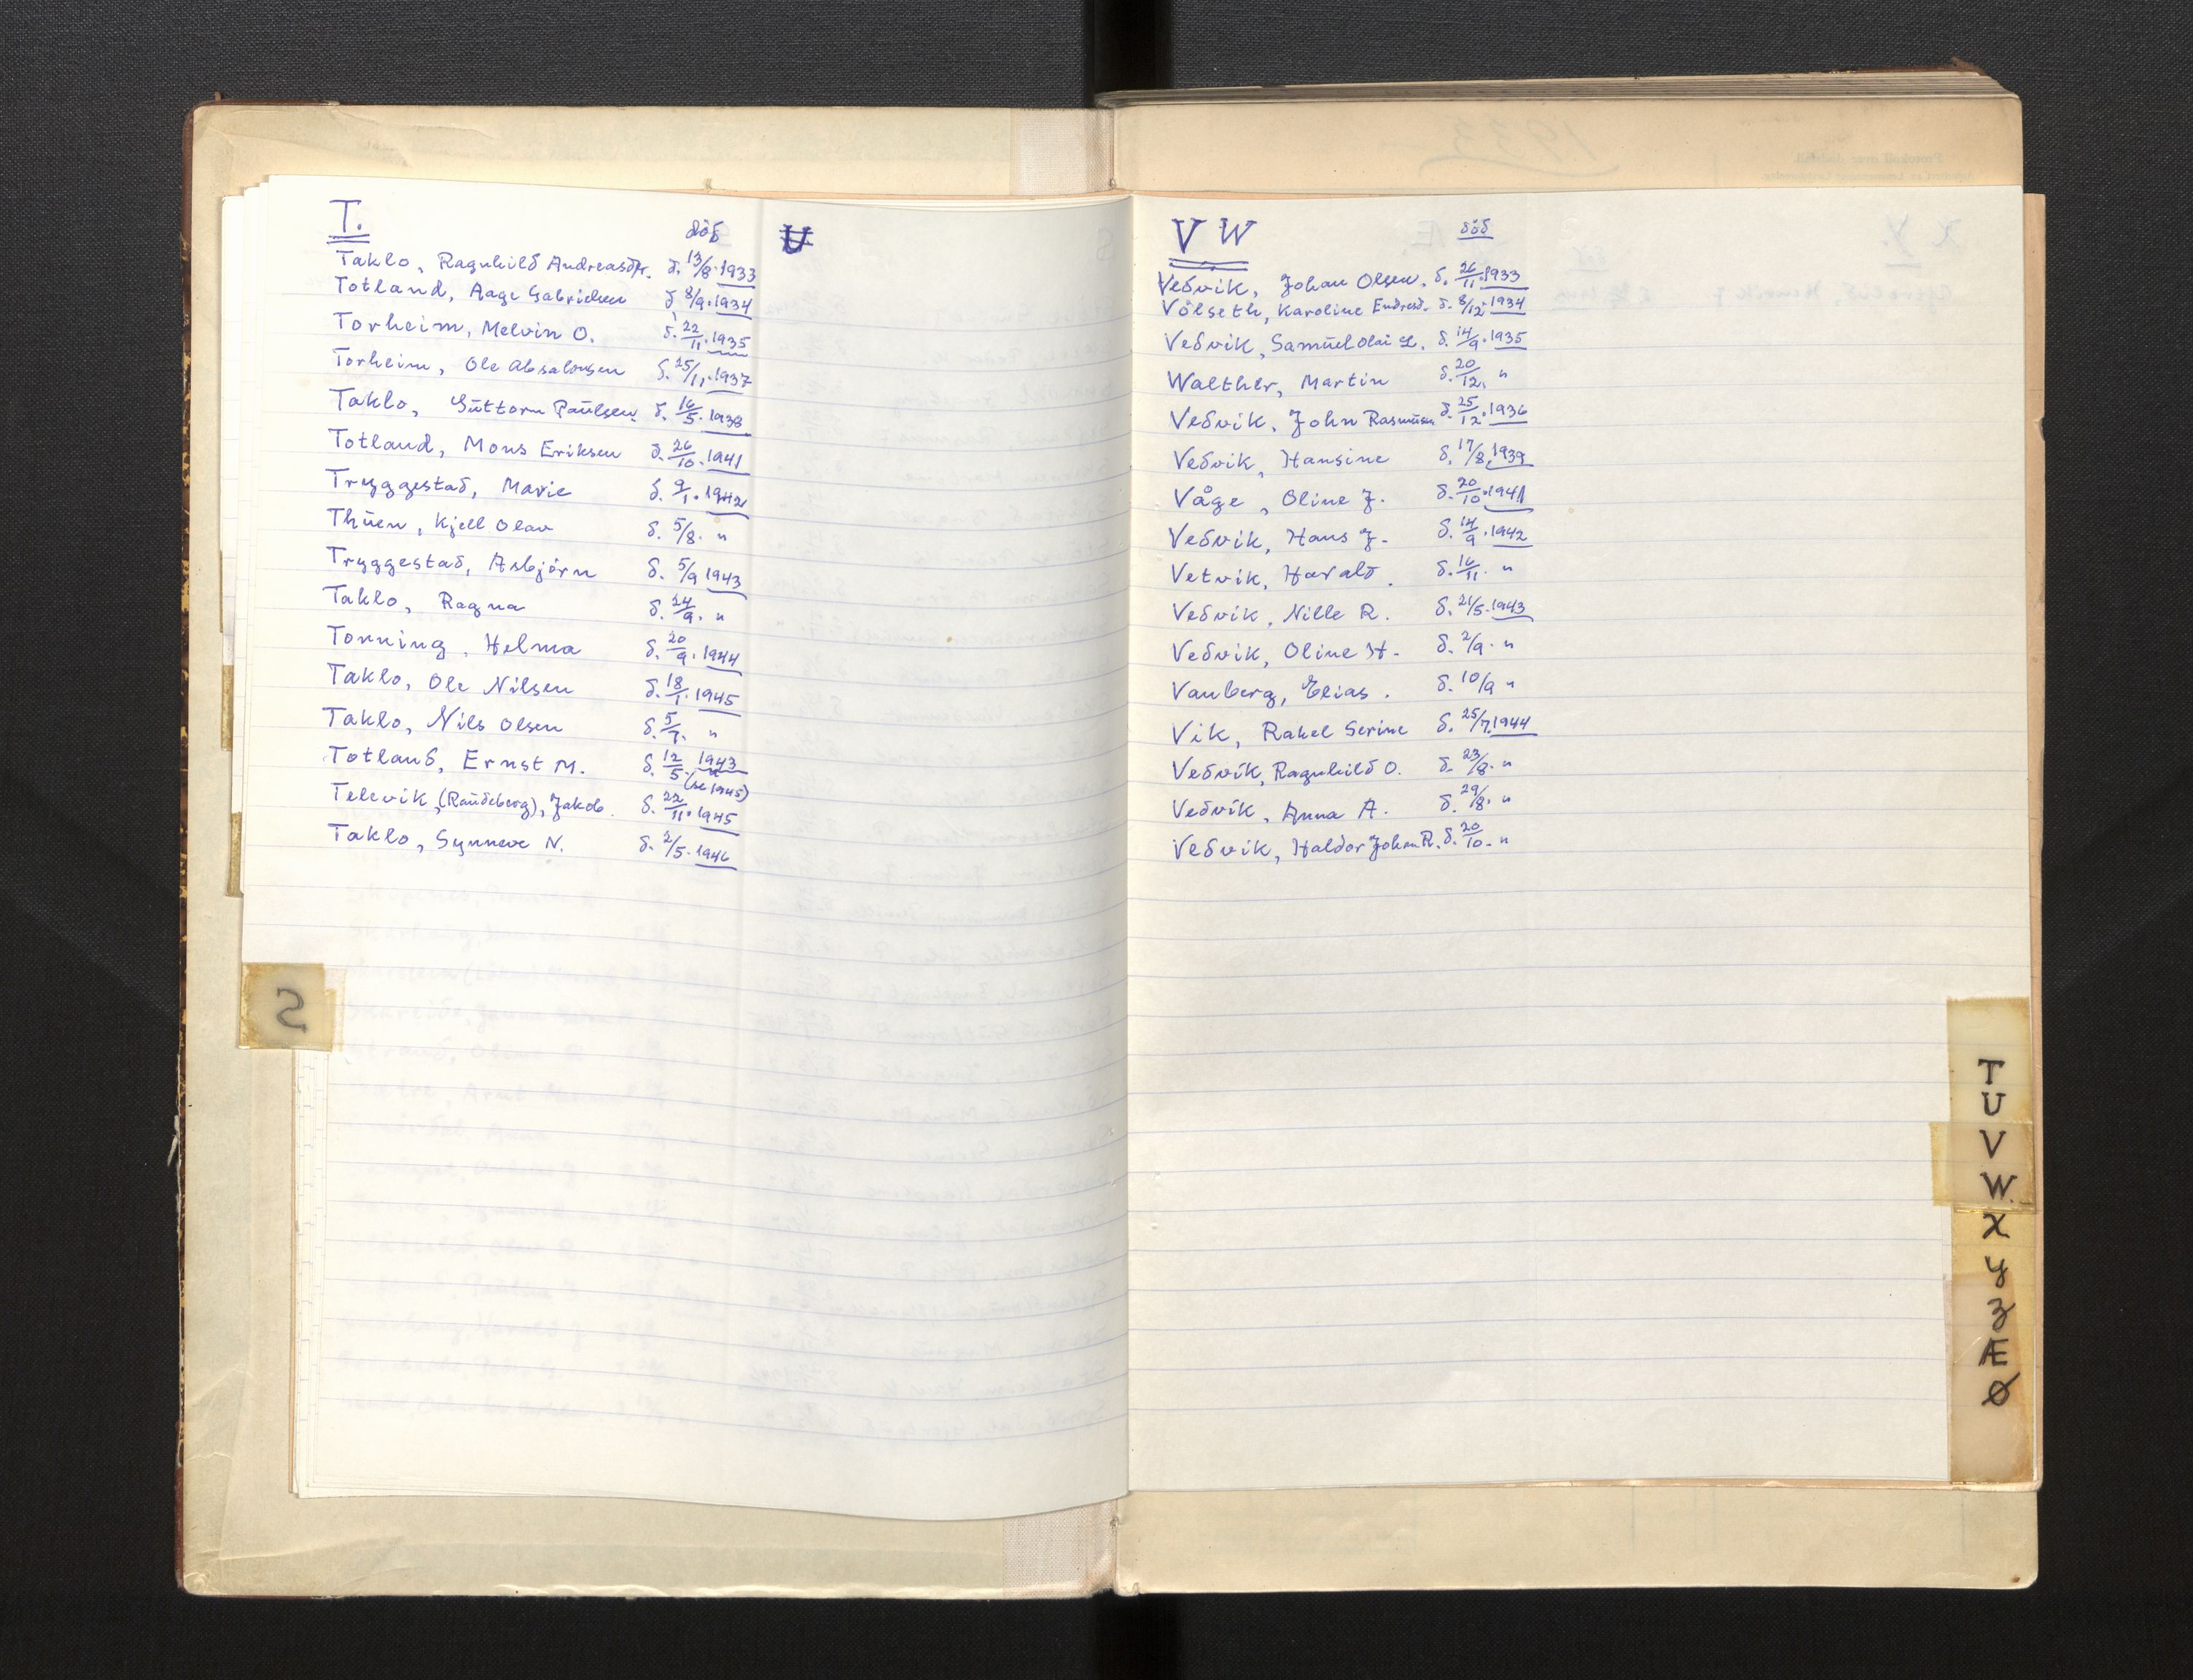 T. död
Taklo, Ragnhild Andreasdtr. d. 13/8. 1933
Totland, Aage Gabrielsen d 8/9. 1934
Torheim, Melvin O. d. 22/11. 1935
Torheim, Ole Absalonsen d. 25/11. 1937
Taklo, Guttorm Paulsen d. 16/5. 1938
Totland, Mons Eriksen d. 26/10. 1941
Tryggestad, Marie d. 9/1. 1942
Thuen, Kjell Olav d. 5/8. "
Tryggestad, Asbjörn d. 5/9 1943
Taklo, Ragna d. 24/9. "
Tonning, Helma d. 20/9. 1944
Taklo, Ole Nilsen d. 18/1. 1945
Taklo, Nils Olsen d. 5/7. "
Totland, Ernst M. d. 12/5. 1943
(se 1945)
Televik, (Raudeberg), Jakob. d. 22/11. 1945
Taklo, Synneve N. d. 2/5. 1946
U
V W död
Vedvik, Johan Olsen. d. 26/11. 1933
Völseth, Karoline Endresd. d. 8/12 1934
Vedvik, Samuel Olai L. d. 14/9. 1935
Walther, Martin d. 20/12. "
Vedvik, John Rasmussen d. 25/12. 1936
Vedvik, Hansine d. 17/8. 1939
Våge, Oline J. d. 20/10. 1941
Vedvik, Hans J. d. 14/9. 1942
Vetvik, Harald. d. 16/11. "
Vedvik, Nille R. d. 21/5. 1943
Vedvik, Oline H. d. 2/9. "
Vanberg, Elias. d. 10/9 "
Vik, Rakel Serine d. 25/7. 1944
Vedvik, Ragnhild O. d. 23/8. "
Vedvik, Anna A. d. 29/8. "
Vedvik, Haldor Johan R. d. 20/10. "
S
T
U
V
W.
X
Y
Z
Æ
Ø